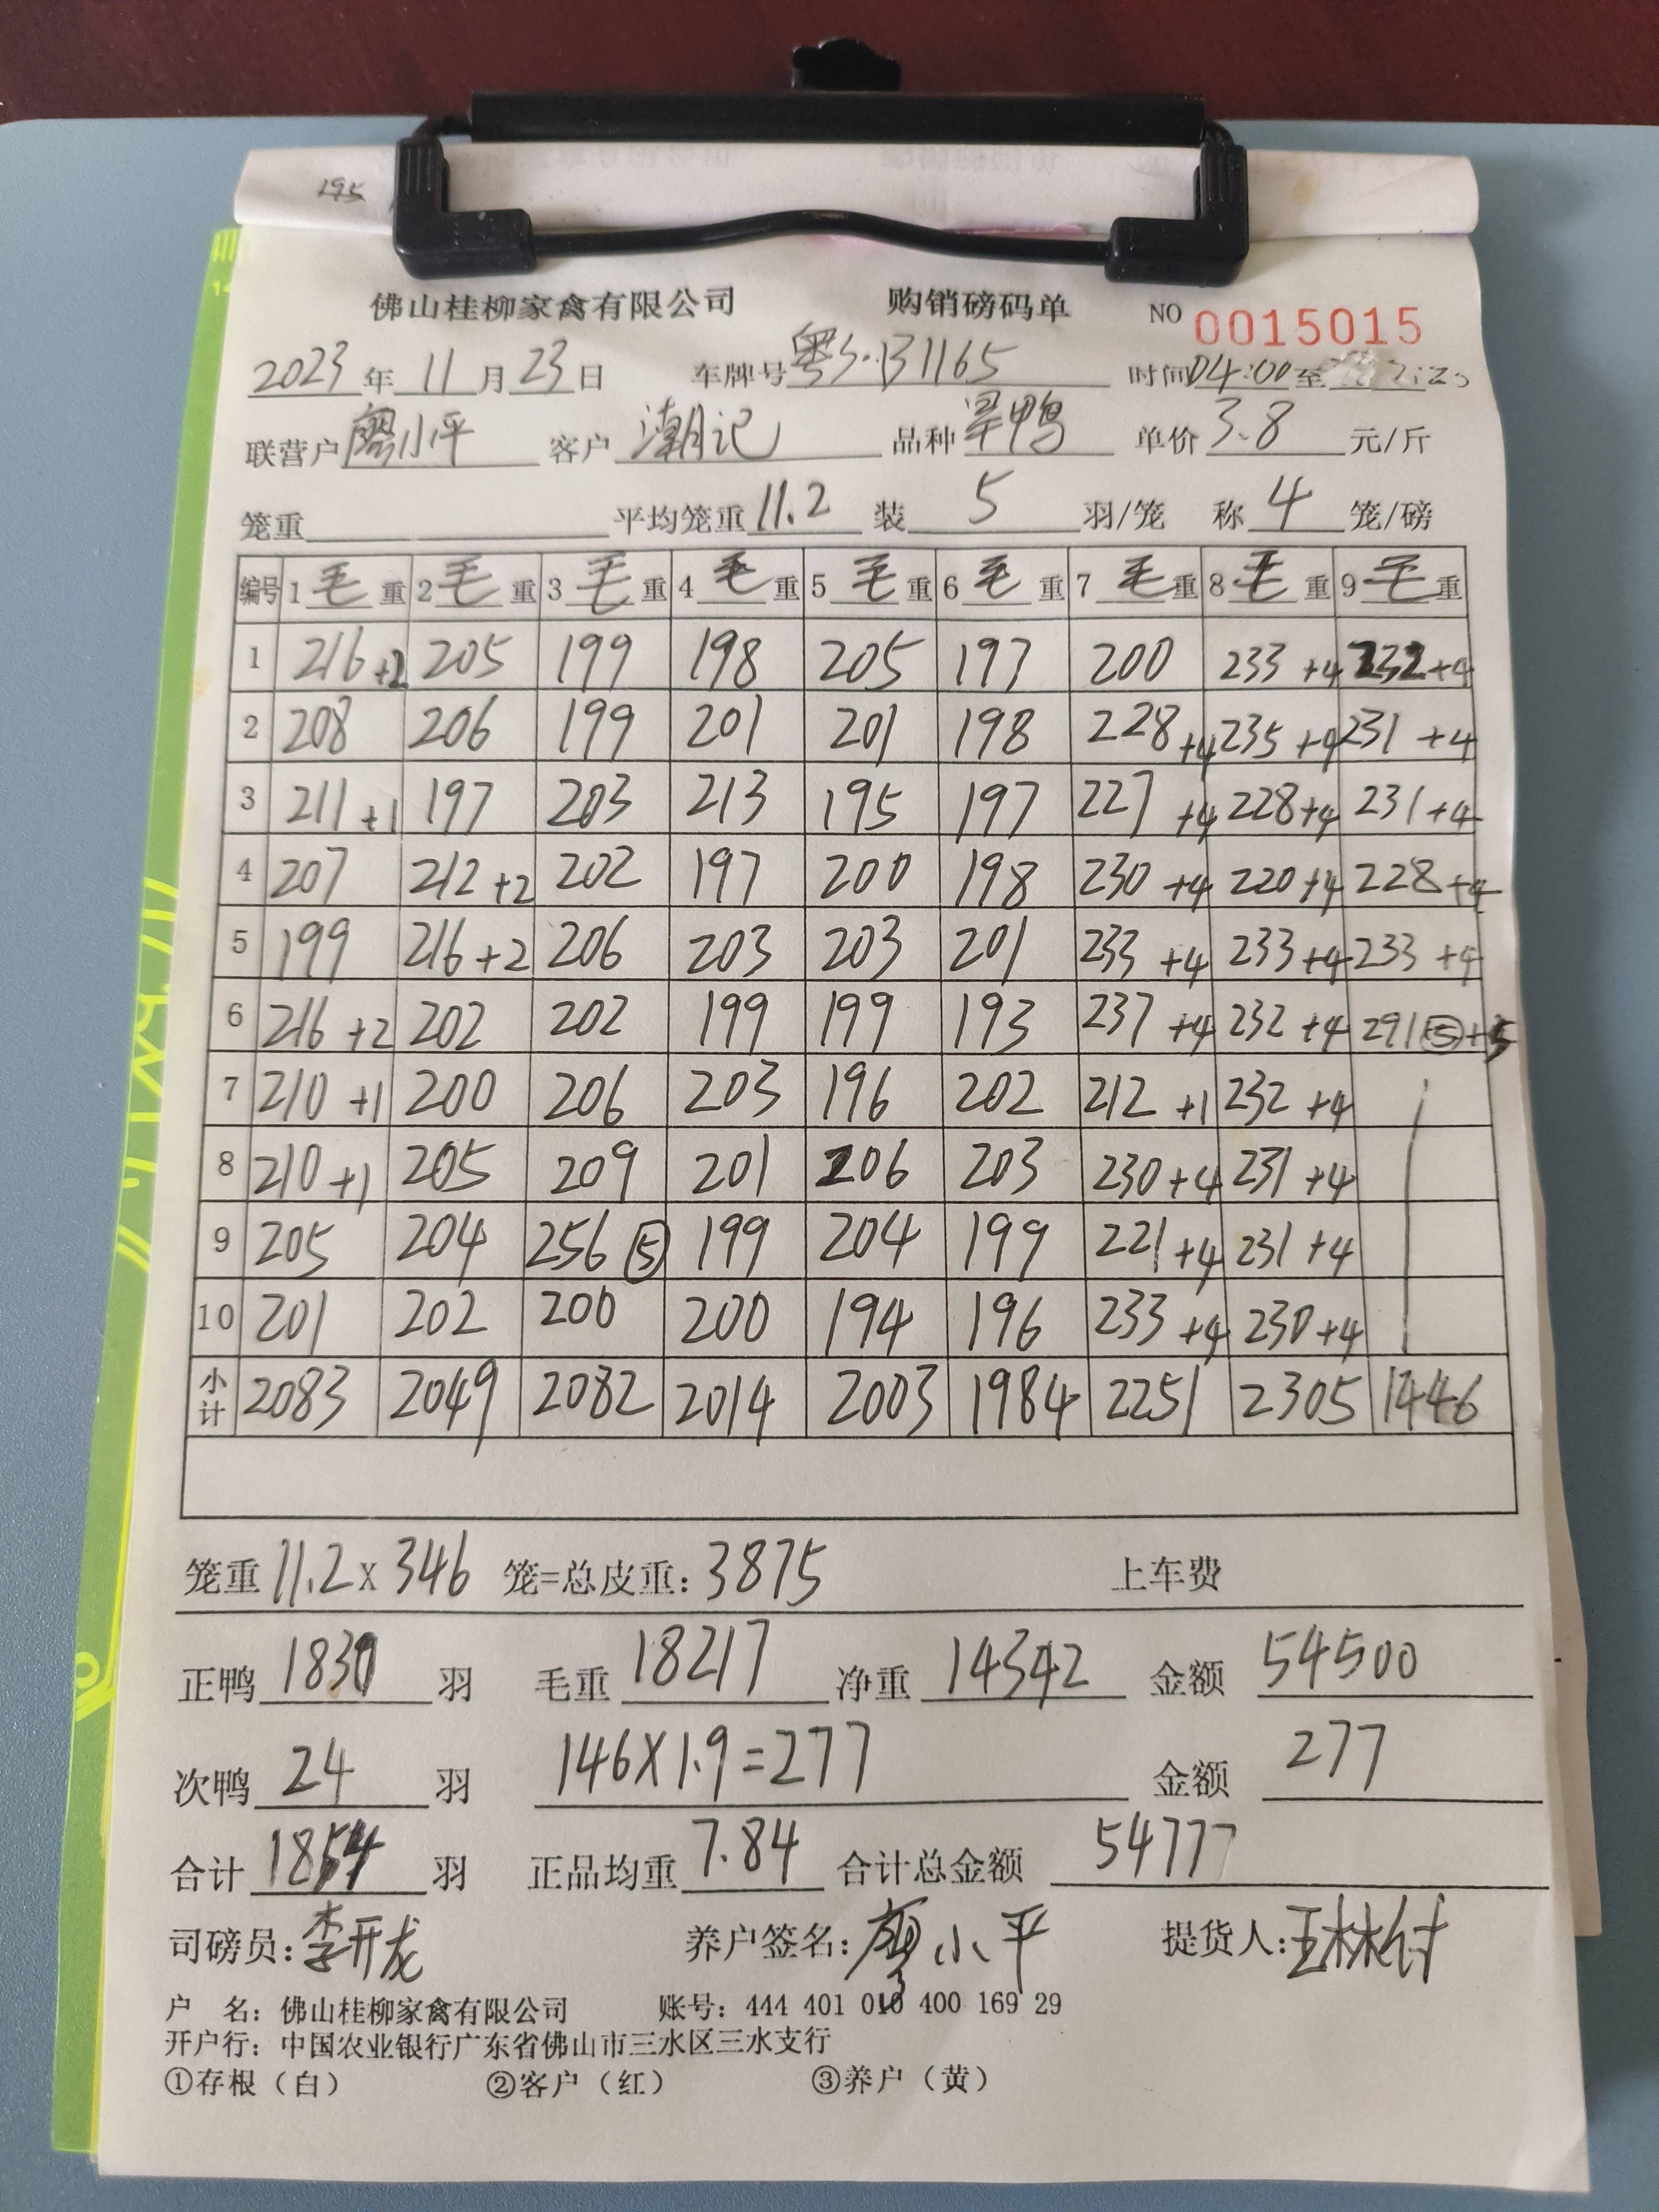 195
佛山桂柳家禽有限公司 购销磅码单 NO 0015015
2023年11月23日 车牌号 粤S·131165 时间04:00至
联营户 廖小平 客户 潮记 品种 单价 3.8 元/斤
笼重 平均笼重 11.2 装 5 羽/笼 称 4 笼/磅
编号 1毛重 2毛重 3毛重 4毛重 5毛重 6毛重 7毛重 8毛重 9毛重
1 216+2 205 199 198 205 197 200 233+4 232+4
2 208 206 199 201 201 198 228+4 235+4 231+4
3 211+1 197 203 213 195 197 227+4 228+4 231+4
4 207 212+2 202 197 200 198 230+4 220+4 228+4
5 199 216+2 206 203 203 201 233+4 233+4 233+4
6 216+2 202 202 199 199 193 237+4 232+4 291⑤+5
7 210+1 200 206 203 196 202 212+1 232+4
8 210+1 205 209 201 206 203 230+4 231+4
9 205 204 256⑤ 199 204 199 221+4 231+4
10 201 202 200 200 194 196 233+4 230+4
小计 2083 2049 2082 2014 2003 1984 2251 2305 1446
笼重 11.2 X 346 笼=总皮重: 3875 上车费
正鸭 1830 羽 毛重 18217 净重 14342 金额 54500
次鸭 24 羽 146X1.9=277 金额 277
合计 1854 羽 正品均重 7.84 合计总金额 54777
司磅员: 李开龙 养户签名: 廖小平 提货人: 王林付
户 名: 佛山桂柳家禽有限公司 账号: 444 401 010 400 169 29
开户行: 中国农业银行广东省佛山市三水区三水支行
①存根（白） ②客户（红） ③养户（黄）